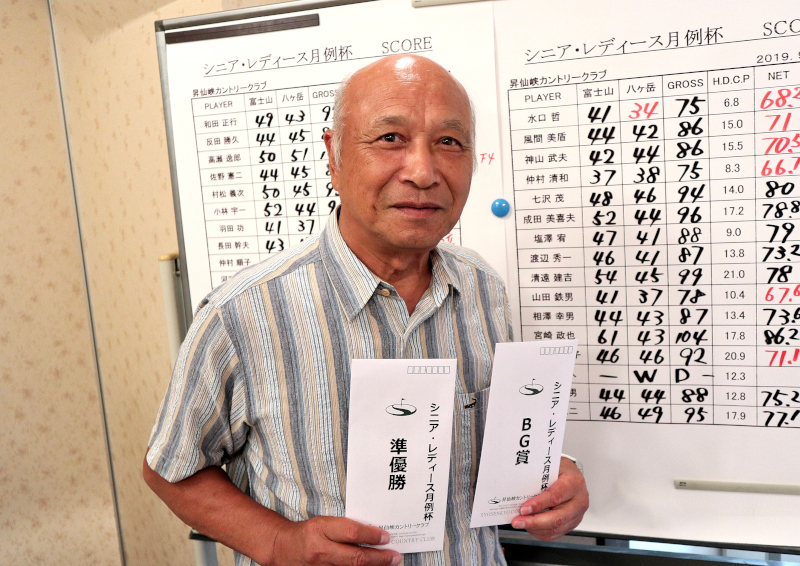 シニア・レディース月例杯 SCORE
昇仙峡カントリークラブ
PLAYER 富士山 八ヶ岳 GROSS
和田 正行 49 43
反田 勝久 44 45
高瀬 逸郎 50 51
佐野 憲二 44 45
村松 義次 50 45
小林 宇一 52 44
羽田 功 41 37
長田 幹夫 43
仲村 順子
シニア・レディース月例杯
昇仙峡カントリークラブ 2019.
PLAYER 富士山 八ヶ岳 GROSS H.D.C.P NET
水口 哲 41 34 75 6.8 68.2
風間 美盾 44 42 86 15.0 71
神山 武夫 42 44 86 15.5 70.5
仲村 清和 37 38 75 8.3 66.7
七沢 茂 48 46 94 14.0 80
成田 美喜夫 52 44 96 17.2 78.8
塩澤 宥 47 41 88 9.0 79
渡辺 秀一 46 41 87 13.8 73.2
清遠 建吉 54 45 99 21.0 78
山田 鉄男 41 37 78 10.4 67.6
相澤 幸男 44 43 87 13.4 73.6
宮崎 政也 61 43 104 17.8 86.2
46 46 92 20.9 71.1
- W D - 12.3
男 44 44 88 12.8 75.2
二 46 49 95 17.9 77.1
シニア・レディース月例杯
準優勝
昇仙峡カントリークラブ
シニア・レディース月例杯
BG賞
昇仙峡カントリークラブ